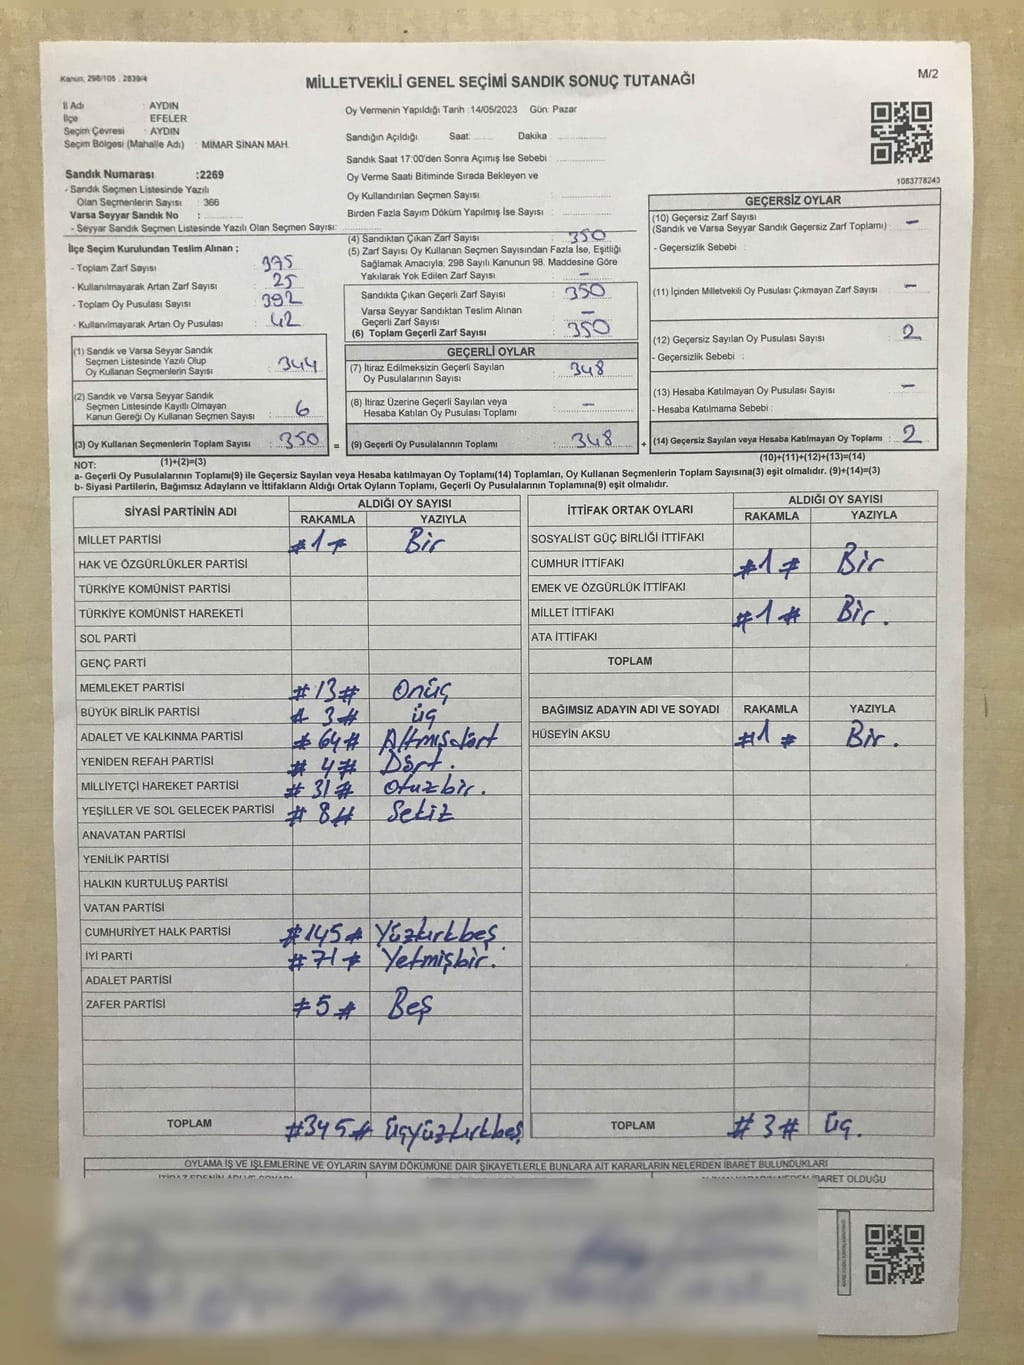 Kanun: 298/105 , 2839/4
MİLLETVEKİLİ GENEL SEÇİMİ SANDIK SONUÇ TUTANAĞI
M/2
İl Adı : AYDIN
İlçe : EFELER
Seçim Çevresi : AYDIN
Seçim Bölgesi (Mahalle Adı) : MİMAR SİNAN MAH.
Oy Vermenin Yapıldığı Tarih :14/05/2023 Gün: Pazar
Sandığın Açıldığı Saat: Dakika
Sandık Saat 17:00'den Sonra Açımış İse Sebebi :
Oy Verme Saati Bitiminde Sırada Bekleyen ve
Oy Kullandırılan Seçmen Sayısı :
Birden Fazla Sayım Döküm Yapılmış İse Sayısı :
1063778243
Sandık Numarası :2269
- Sandık Seçmen Listesinde Yazılı
Olan Seçmenlerin Sayısı : 366
Varsa Seyyar Sandık No :
- Seyyar Sandık Seçmen Listesinde Yazılı Olan Seçmen Sayısı:
İlçe Seçim Kurulundan Teslim Alınan ;
- Toplam Zarf Sayısı : 375
- Kullanılmayarak Artan Zarf Sayısı : 25
- Toplam Oy Pusulası Sayısı : 392
- Kullanılmayarak Artan Oy Pusulası : 42
(1) Sandık ve Varsa Seyyar Sandık
Seçmen Listesinde Yazılı Olup
Oy Kullanan Seçmenlerin Sayısı : 344
(2) Sandık ve Varsa Seyyar Sandık
Seçmen Listesinde Kayıtlı Olmayan
Kanun Gereği Oy Kullanan Seçmen Sayısı : 6
(3) Oy Kullanan Seçmenlerin Toplam Sayısı : 350 =
(1)+(2)=(3)
(4) Sandıktan Çıkan Zarf Sayısı : 350
(5) Zarf Sayısı Oy Kullanan Seçmen Sayısından Fazla İse, Eşitliği
Sağlamak Amacıyla, 298 Sayılı Kanunun 98. Maddesine Göre
Yakılarak Yok Edilen Zarf Sayısı : –
Sandıkta Çıkan Geçerli Zarf Sayısı : 350
Varsa Seyyar Sandıktan Teslim Alınan
Geçerli Zarf Sayısı : –
(6) Toplam Geçerli Zarf Sayısı : 350
GEÇERLİ OYLAR
(7) İtiraz Edilmeksizin Geçerli Sayılan
Oy Pusulalarının Sayısı : 348
(8) İtiraz Üzerine Geçerli Sayılan veya
Hesaba Katılan Oy Pusulası Toplamı : –
(9) Geçerli Oy Pusulalarının Toplamı : 348 +
GEÇERSİZ OYLAR
(10) Geçersiz Zarf Sayısı
(Sandık ve Varsa Seyyar Sandık Geçersiz Zarf Toplamı) : –
- Geçersizlik Sebebi :
(11) İçinden Milletvekili Oy Pusulası Çıkmayan Zarf Sayısı : –
(12) Geçersiz Sayılan Oy Pusulası Sayısı : 2
- Geçersizlik Sebebi :
(13) Hesaba Katılmayan Oy Pusulası Sayısı : –
- Hesaba Katılmama Sebebi :
(14) Geçersiz Sayılan veya Hesaba Katılmayan Oy Toplamı : 2
(10)+(11)+(12)+(13)=(14)
NOT:
a- Geçerli Oy Pusulalarının Toplamı(9) ile Geçersiz Sayılan veya Hesaba katılmayan Oy Toplamı(14) Toplamları, Oy Kullanan Seçmenlerin Toplam Sayısına(3) eşit olmalıdır. (9)+(14)=(3)
b- Siyasi Partilerin, Bağımsız Adayların ve İttifakların Aldığı Ortak Oyların Toplamı, Geçerli Oy Pusulalarının Toplamına(9) eşit olmalıdır.
SİYASİ PARTİNİN ADI ALDIĞI OY SAYISI
RAKAMLA YAZIYLA
MİLLET PARTİSİ #1# Bir
HAK VE ÖZGÜRLÜKLER PARTİSİ
TÜRKİYE KOMÜNİST PARTİSİ
TÜRKİYE KOMÜNİST HAREKETİ
SOL PARTİ
GENÇ PARTİ
MEMLEKET PARTİSİ #13# Onüç
BÜYÜK BİRLİK PARTİSİ # 3# üç
ADALET VE KALKINMA PARTİSİ # 64# Altmışdört
YENİDEN REFAH PARTİSİ # 4# Dört.
MİLLİYETÇİ HAREKET PARTİSİ # 31# otuzbir.
YEŞİLLER VE SOL GELECEK PARTİSİ # 8# Sekiz
ANAVATAN PARTİSİ
YENİLİK PARTİSİ
HALKIN KURTULUŞ PARTİSİ
VATAN PARTİSİ
CUMHURİYET HALK PARTİSİ #145# Yüzkırkbeş
İYİ PARTİ # 71# Yetmişbir.
ADALET PARTİSİ
ZAFER PARTİSİ #5# Beş
TOPLAM #345# üçyüzkırkbeş
İTTİFAK ORTAK OYLARI ALDIĞI OY SAYISI
RAKAMLA YAZIYLA
SOSYALİST GÜÇ BİRLİĞİ İTTİFAKI
CUMHUR İTTİFAKI #1# Bir
EMEK VE ÖZGÜRLÜK İTTİFAKI
MİLLET İTTİFAKI #1# Bir.
ATA İTTİFAKI
TOPLAM
BAĞIMSIZ ADAYIN ADI VE SOYADI RAKAMLA YAZIYLA
HÜSEYİN AKSU #1# Bir.
TOPLAM # 3# üç.
OYLAMA İŞ VE İŞLEMLERİNE VE OYLARIN SAYIM DÖKÜMÜNE DAİR ŞİKAYETLERLE BUNLARA AİT KARARLARIN NELERDEN İBARET BULUNDUKLARI
İBARET OLDUĞU